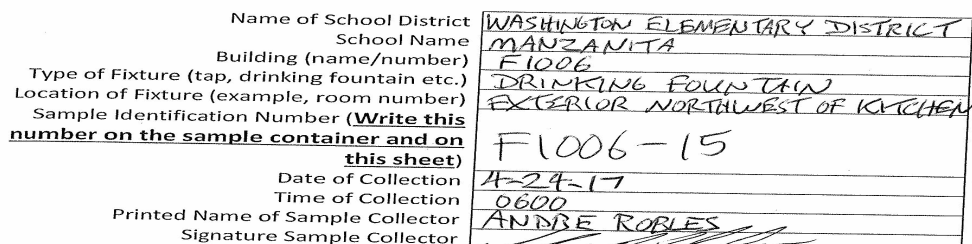 Name of School District WASHINGTON ELEMENTARY DISTRICT
School Name MANZANITA
Building (name/number) F1006
Type of Fixture (tap, drinking fountain etc.) DRINKING FOUNTAIN
Location of Fixture (example, room number) EXTERIOR NORTHWEST OF KITCHEN
Sample Identification Number (Write this
number on the sample container and on
this sheet) F1006-15
Date of Collection 4-24-17
Time of Collection 0600
Printed Name of Sample Collector ANDRE ROBLES
Signature Sample Collector